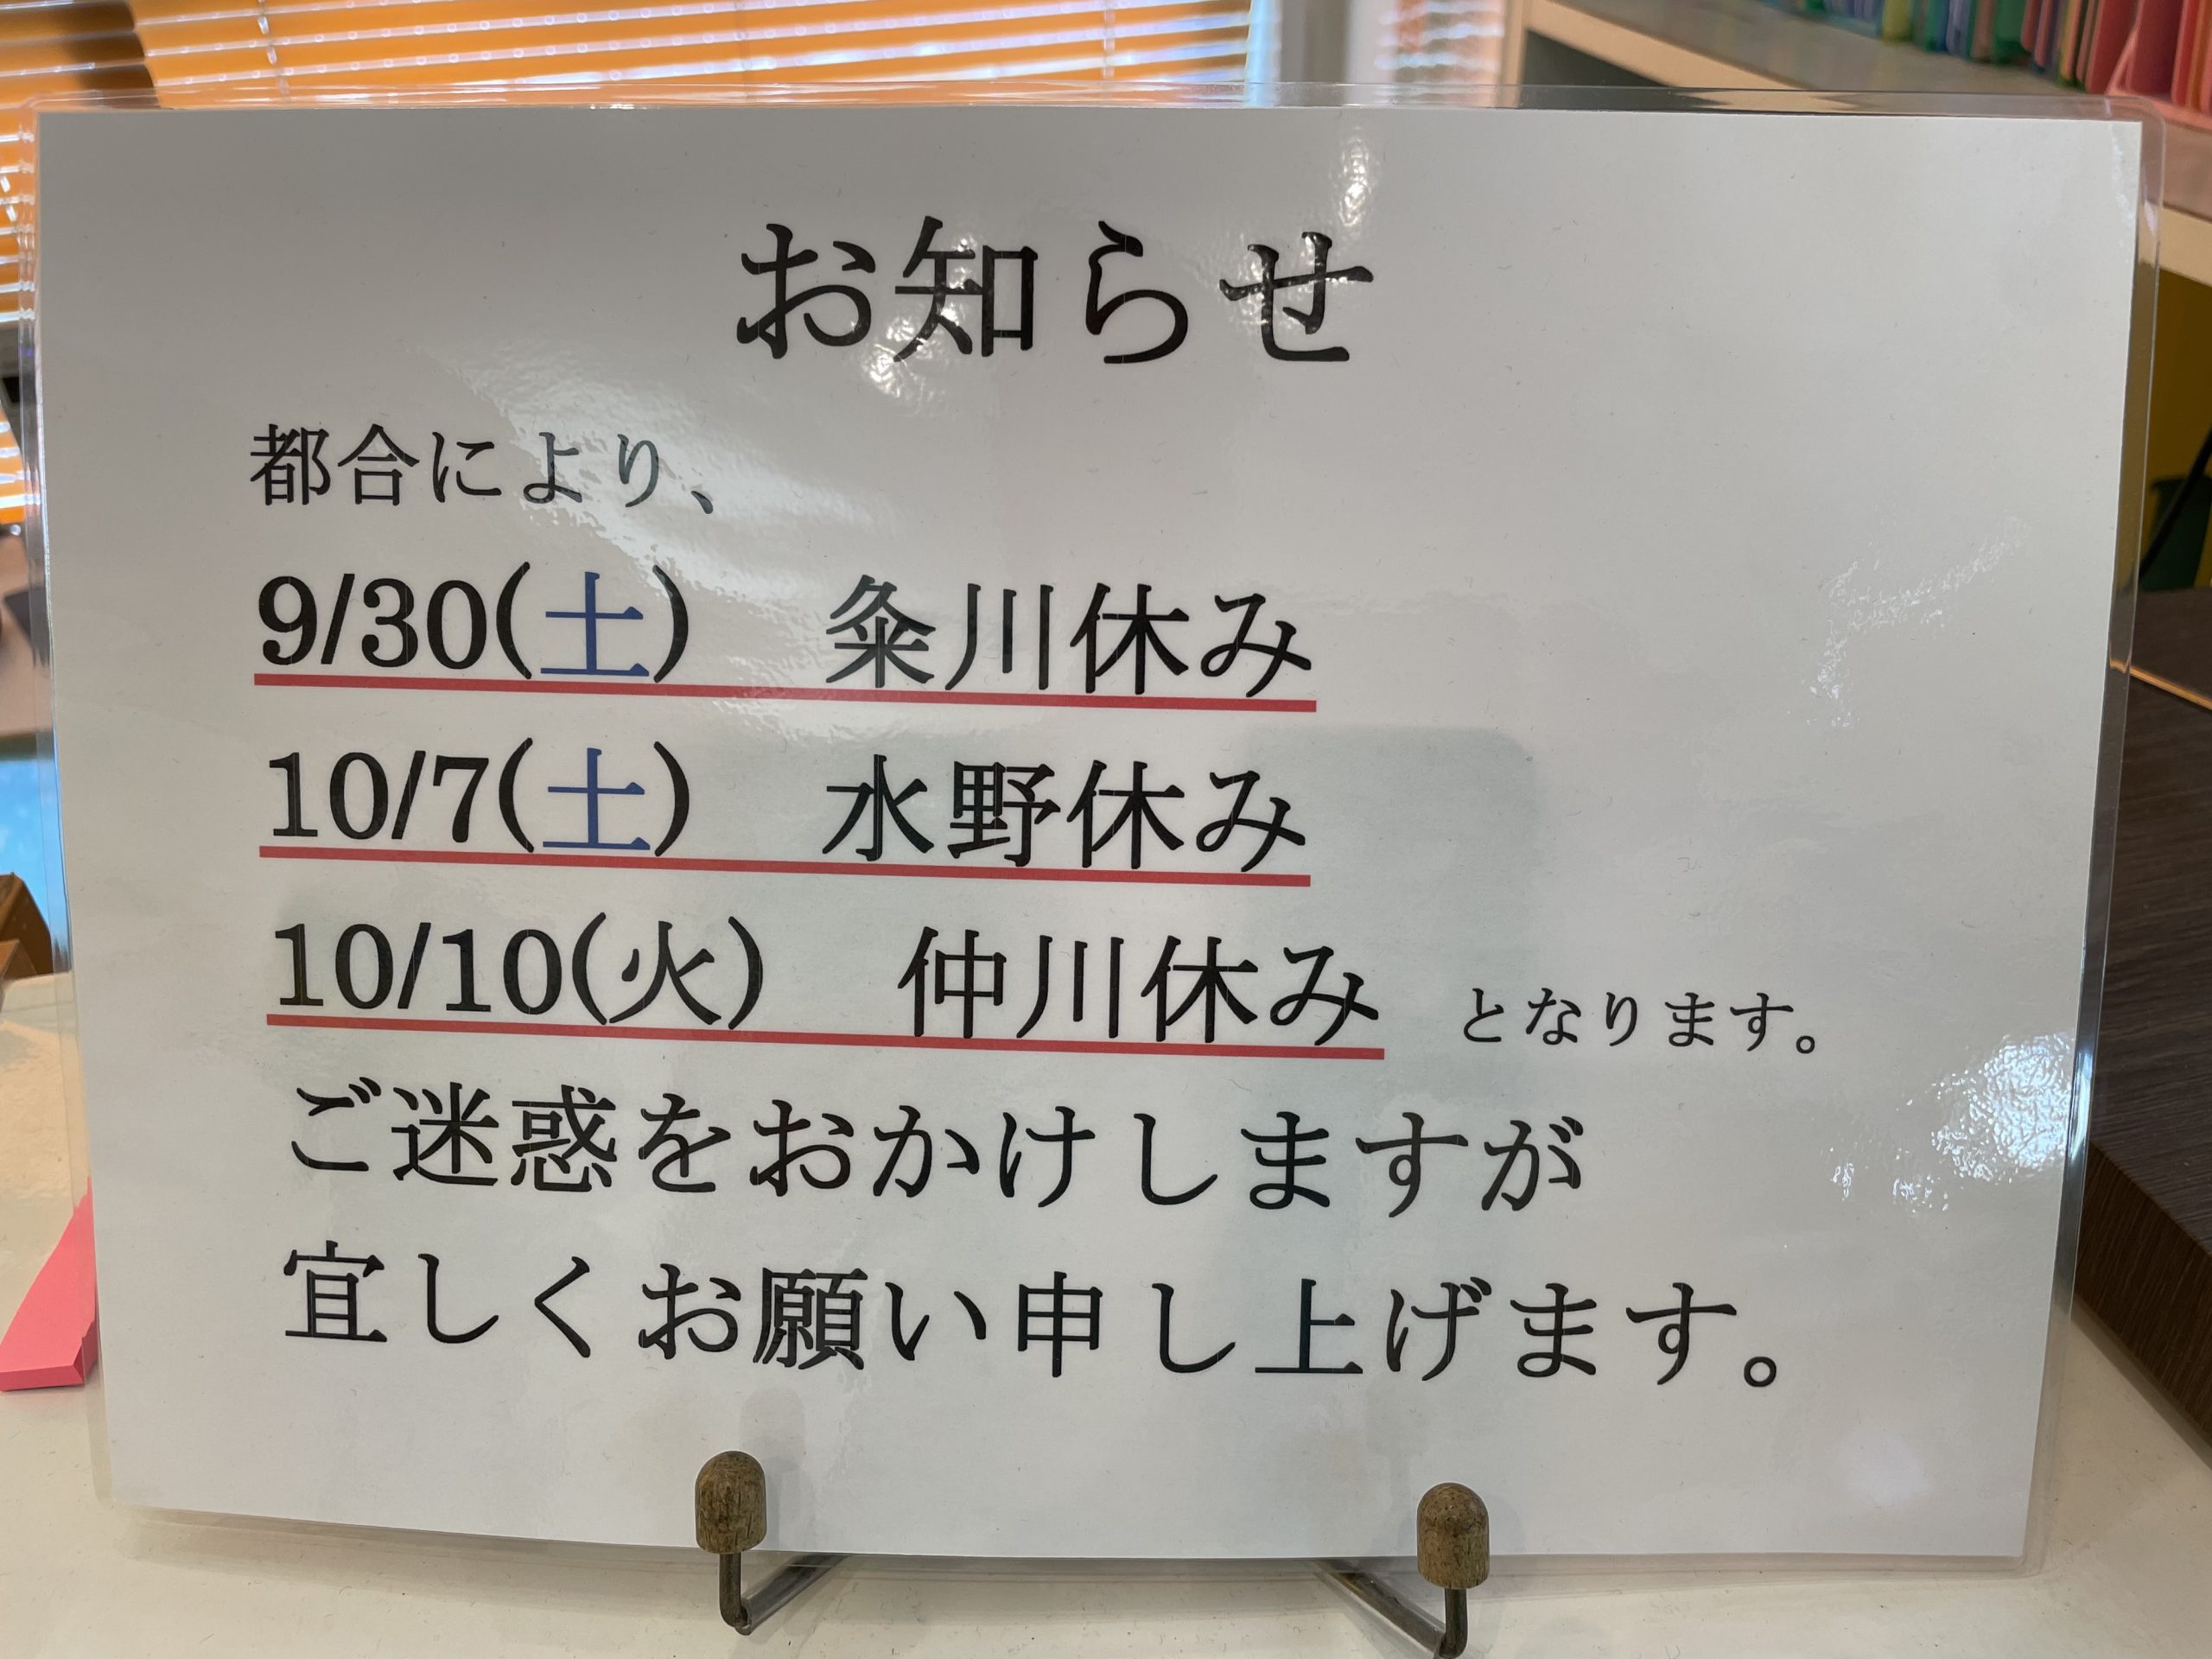 お知らせ
都合により、
9/30(土)　粂川休み
10/7(土)　水野休み
10/10(火)　仲川休み　となります。
ご迷惑をおかけしますが
宜しくお願い申し上げます。